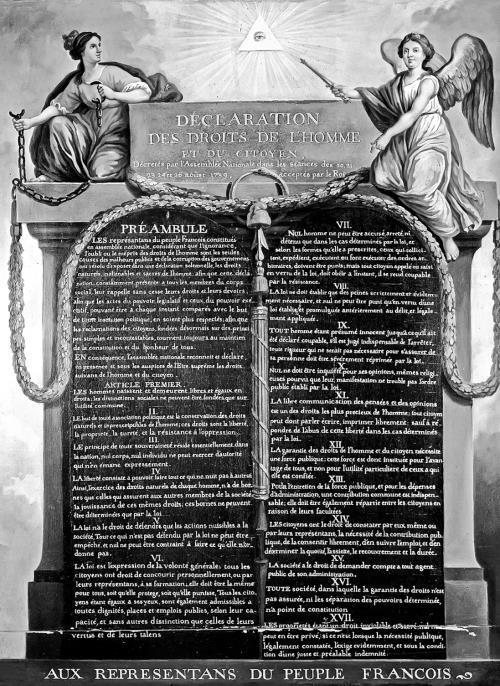 DÉCLARATION
DES DROITS DE L'HOMME
ET DU CITOYEN,
Décrétés par l'Assemblée Nationale dans les séances des 20, 21
23, 24 et 26 aoust 1789, acceptés par le Roi
PRÉAMBULE
LES représentans du peuple François, constitués
en assemblée nationale, considérant que l'ignorance,
l'oubli ou le mépris des droits de l'homme sont les seules
causes des malheurs publics et de la corruption des gouvernemens
ont résolu d'exposer dans une déclaration solemnelle, les droits
naturels, inaliénables et sacrés de l'homme; afin que cette décla-
ration, constamment présente à tous les membres du corps
social, leur rappelle sans cesse leurs droits et leurs devoirs;
afin que les actes du pouvoir législatif et ceux du pouvoir exé-
cutif, pouvant être à chaque instant comparés avec le but
de toute institution politique, en soient plus respectés; afin que
les réclamations des citoyens, fondées désormais sur des princi-
pes simples et incontestables, tournent toujours au maintien
de la constitution et du bonheur de tous.
EN conséquence, l'assemblée nationale reconnoit et déclare,
en présence et sous les auspices de l'Etre suprême les droits
suivans de l'homme et du citoyen.
ARTICLE PREMIER.
LES hommes naissent et demeurent libres et égaux en
droits; les distinctions sociales ne peuvent être fondées que sur
l'utilité commune.
II.
LE but de toute association politique est la conservation des droits
naturels et imprescriptibles de l'homme; ces droits sont la liberté,
la propriété, la sureté, et la résistance à l'oppression.
III.
LE principe de toute souveraineté réside essentiellement dans
la nation, nul corps, nul individu ne peut exercer d'autorité
qui n'en émane expressément.
IV.
LA liberté consiste à pouvoir faire tout ce qui ne nuit pas à autrui
Ainsi, l'exercice des droits naturels de chaque homme, n'a de bor-
nes que celles qui assurent aux autres membres de la société
la jouissance de ces mêmes droits; ces bornes ne peuvent
être déterminées que par la loi.
V.
LA loi n'a le droit de défendre que les actions nuisibles à la
société. Tout ce qui n'est pas défendu par la loi ne peut être
empêché, et nul ne peut être contraint à faire ce qu'elle n'or-
donne pas.
VI.
LA loi est l'expression de la volonté générale; tous les
citoyens ont droit de concourir personnellement, ou par
leurs représentans, à sa formation; elle doit être la même
pour tous, soit qu'elle protege, soit qu'elle punisse. Tous les cito-
yens étant égaux à ses yeux, sont également admissibles à
toutes dignités, places et emplois publics, selon leur ca-
pacité, et sans autres distinction que celles de leurs
vertus et de leurs talens
VII.
NUL homme ne peut être accusé, arrêté ni
détenu que dans les cas déterminés par la loi, et
selon les formes qu'elle a prescrites, ceux qui sollici-
tent, expédient, exécutent ou font exécuter des ordres ar-
bitraires, doivent être punis; mais tout citoyen appelé ou saisi
en vertu de la loi, doit obéir à l'instant, il se rend coupable
par la résistance.
VIII.
LA loi ne doit établir que des peines strictement et évidem-
ment nécessaire, et nul ne peut être puni qu'en vertu d'une
loi établie et promulguée antérieurement au délit, et légale-
ment appliquée.
IX.
TOUT homme étant présumé innocent jusqu'à ce qu'il ait
été déclaré coupable, s'il est jugé indispensable de l'arrêter,
toute rigueur qui ne serait pas nécessaire pour s'assurer de
sa personne doit être sévèrement réprimée par la loi.
X.
NUL ne doit être inquiété pour ses opinions, mêmes religi-
euses pourvu que leur manifestation ne trouble pas l'ordre
public établi par la loi.
XI.
LA libre communication des pensées et des opinions
est un des droits les plus precieux de l'homme; tout citoyen
peut donc parler écrire, imprimer librement; sauf à ré-
pondre de l'abus de cette liberté dans les cas déterminés
par la loi.
XII.
LA garantie des droits de l'homme et du citoyen nécessite
une force publique; cette force est donc instituée pour l'avan-
tage de tous, et non pour l'utilité particuliere de ceux a qui
elle est confiée.
XIII.
POUR l'entretien de la force publique, et pour les dépenses
d'administration, une contribution commune est indispen-
sable; elle doit être également répartie entre les citoyens en
raison de leurs facultées.
XIV.
LES citoyens ont le droit de constater par eux même ou
par leurs représentans, la nécessité de la contribution pub-
lique, de la consentir librement, d'en suivre l'emploi, et d'en
déterminer la quotité, l'assiette, le recouvrement et la durée.
XV.
LA société a le droit de demander compte a tout agent
public de son administration.
XVI.
TOUTE société, dans laquelle la garantie des droits n'est
pas assurée, ni les séparation des pouvoirs déterminée,
n'a point de constitution
XVII.
LES propriétés étant un droit inviolable et sacré, nul ne
peut en être privé, si ce n'est lorsque la nécessité publique,
légalement constatée, l'exige évidemment, et sous la condi-
tion d'une juste et préalable indemnité.
AUX REPRESENTANS DU PEUPLE FRANCOIS